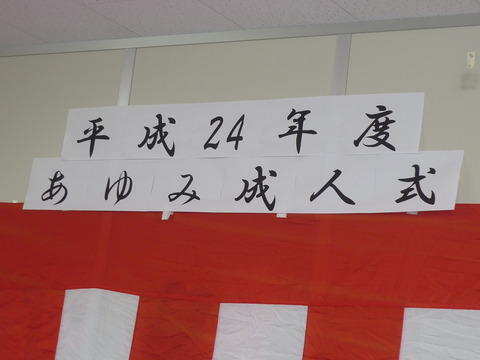 平成24年度
あゆみ成人式